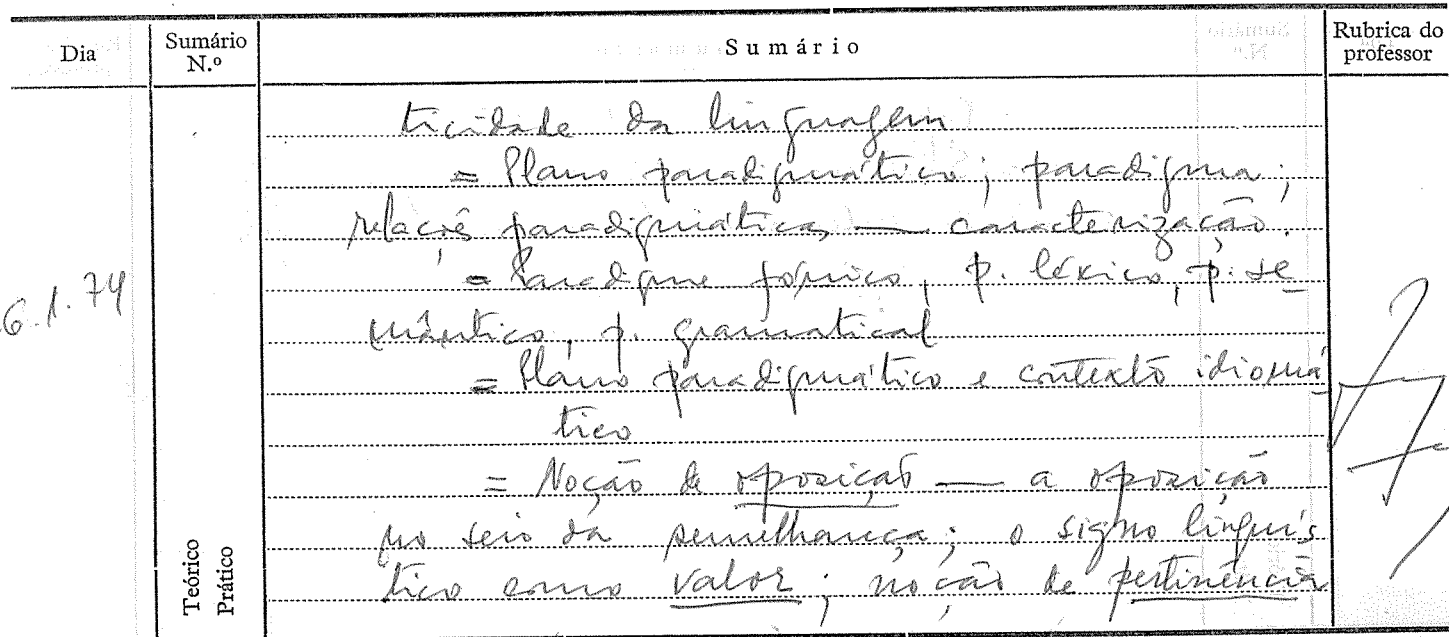 Dia
Sumário N.º
Sumário
Rubrica do professor
ticidade da linguagem
= Plano paradigmático; paradigma;
relações paradigmáticas — caracterização.
= Paradigma fónico, p. léxico, p. se
mântico, p. gramatical
6.1.74
= Plano paradigmático e contexto idiomá
tico
= Noção de oposição — a oposição
no seio da semelhança; o signo linguís
tico como valor; noção de pertinência
Teórico
Prático